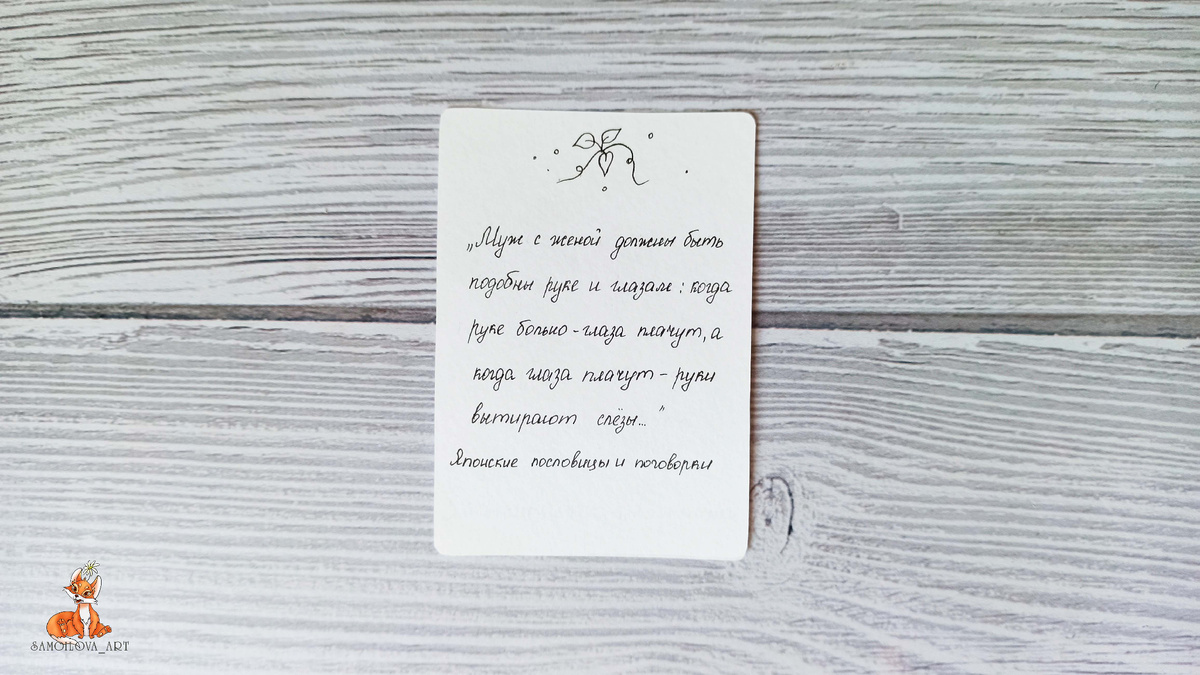 „Муж с женой должны быть
подобны руке и глазам: когда
руке больно - глаза плачут, а
когда глаза плачут - руки
вытирают слёзы..."
Японские пословицы и поговорки
SAMOILOVA_ART